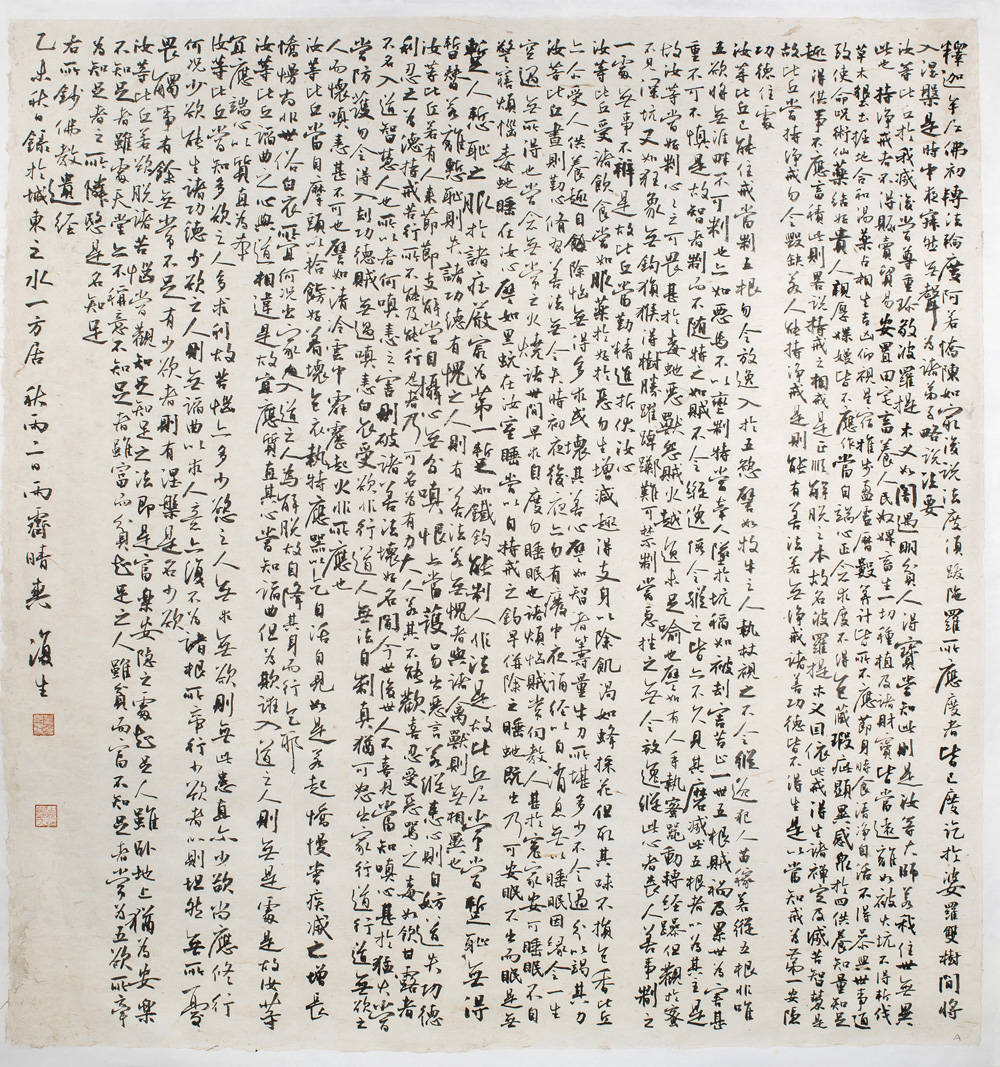 釋迦牟尼佛初轉法輪度阿若憍陳如最後說法度須跋陀羅所應度者皆已度訖於娑羅雙樹間將
入涅槃是時中夜寂然無聲為諸弟子略說法要
汝等比丘於我滅後當尊重珍敬波羅提木叉如闇遇明貧人得寶當知此則是汝等大師若我住世無異
此也持淨戒者不得販賣貿易安置田宅畜養人民奴婢畜生一切種植及諸財寶皆當遠離如避火坑不得斬伐
草木墾土掘地合和湯藥占相吉凶仰觀星宿推步盈虛曆數算計皆所不應節身時食清淨自活不得參與世事通
致使命咒術仙藥結好貴人親厚媟嫚皆不應作當自端心正念求度不得包藏瑕疵顯異惑眾於四供養知量知足
趣得供事不應畜積此則略說持戒之相戒是正順解脫之本故名波羅提木叉因依此戒得生諸禪定及滅苦智慧是
故比丘當持淨戒勿令毀缺若人能持淨戒是則能有善法若無淨戒諸善功德皆不得生是以當知戒為第一安隱
功德住處
汝等比丘已能住戒當制五根勿令放逸入於五欲譬如牧牛之人執杖視之不令縱逸犯人苗稼若縱五根非唯
五欲將無涯畔不可制也亦如惡馬不以轡制將當牽人墜於坑陷如被劫害苦止一世五根賊禍殃及累世為害甚
重不可不慎是故智者制而不隨持之如賊不令縱逸假令縱之皆亦不久見其磨滅此五根者心為其主是
故汝等當好制心心之可畏甚於毒蛇惡獸怨賊火越逸未足喻也譬如有人手執蜜器動轉輕躁但觀於蜜
不見深坑又如狂象無鉤猿猴得樹騰躍踔躑難可禁制當急挫之無令放逸縱此心者喪人善事制之
一處無事不辦是故比丘當勤精進折伏汝心
汝等比丘受諸飲食當如服藥於好於惡勿生增減趣得支身以除飢渴如蜂採花但取其味不損色香比丘
亦爾受人供養趣自除惱無得多求壞其善心譬如智者籌量牛力所堪多少不令過分以竭其力
汝等比丘晝則勤心修習善法無令失時初夜後夜亦勿有廢中夜誦經以自消息無以睡眠因緣令一生
空過無所得也當念無常之火燒諸世間早求自度勿睡眠也諸煩惱賊常伺殺人甚於冤家安可睡眠不自
驚寤煩惱毒蛇睡在汝心譬如黑蚖在汝室睡當以自持戒之鉤早併除之睡蛇既出乃可安眠不出而眠是無
慙人慙恥之服於諸莊嚴最為第一慙如鐵鉤能制人非法是故比丘常當慙恥無得
暫替若離慙恥則失諸功德有愧之人則有善法若無愧者與諸禽獸則無相異也
汝等比丘若有人來節節支解當自攝心無令嗔恨亦當護口勿出惡言若縱恚心則自妨道失功德
利忍之為德持戒苦行所不能及能行忍者乃可名為有力大人若其不能歡喜忍受惡罵之毒如飲甘露者
不名入道智慧人也所以者何嗔恚之害則破諸善法壞好名聞今世後世人不喜見當知嗔心甚於猛火常
當防護勿令得入劫功德賊無過嗔恚白衣受欲非行道人無法自制嗔猶可恕出家行道無欲之
人而懷嗔恚甚不可也譬如清冷雲中霹靂起火非所應也
汝等比丘當自摩頭以捨飾好著壞色衣執持應器以乞自活自見如是若起憍慢當疾滅之增長
憍慢尚非世俗白衣所宜何況出家入道之人為解脫故自降其身而行乞耶
汝等比丘諂曲之心與道相違是故宜應質直其心當知諂曲但為欺誑入道之人則無是處是故汝等
宜應端心以質直為本
汝等比丘當知多欲之人多求利故苦惱亦多少慾之人無求無欲則無此患直爾少欲尚應修行
何況少欲能生諸功德少欲之人則無諂曲以求人意亦復不為諸根所牽行少欲者心則坦然無所憂
畏觸事有餘常無不足有少欲者則有涅槃是名少欲
汝等比丘若欲脫諸苦惱當觀知足知足之法即是富樂安隱之處知足人雖臥地上猶為安樂
不知足者雖處天堂亦不稱意不知足者雖富而貧知足之人雖貧而富不知足者常為五欲所牽
為知足者之所憐愍是名知足
右所鈔佛教遺經
乙未秋日錄於城東之水一方居 秋雨二日雨霽晴爽 復生
A